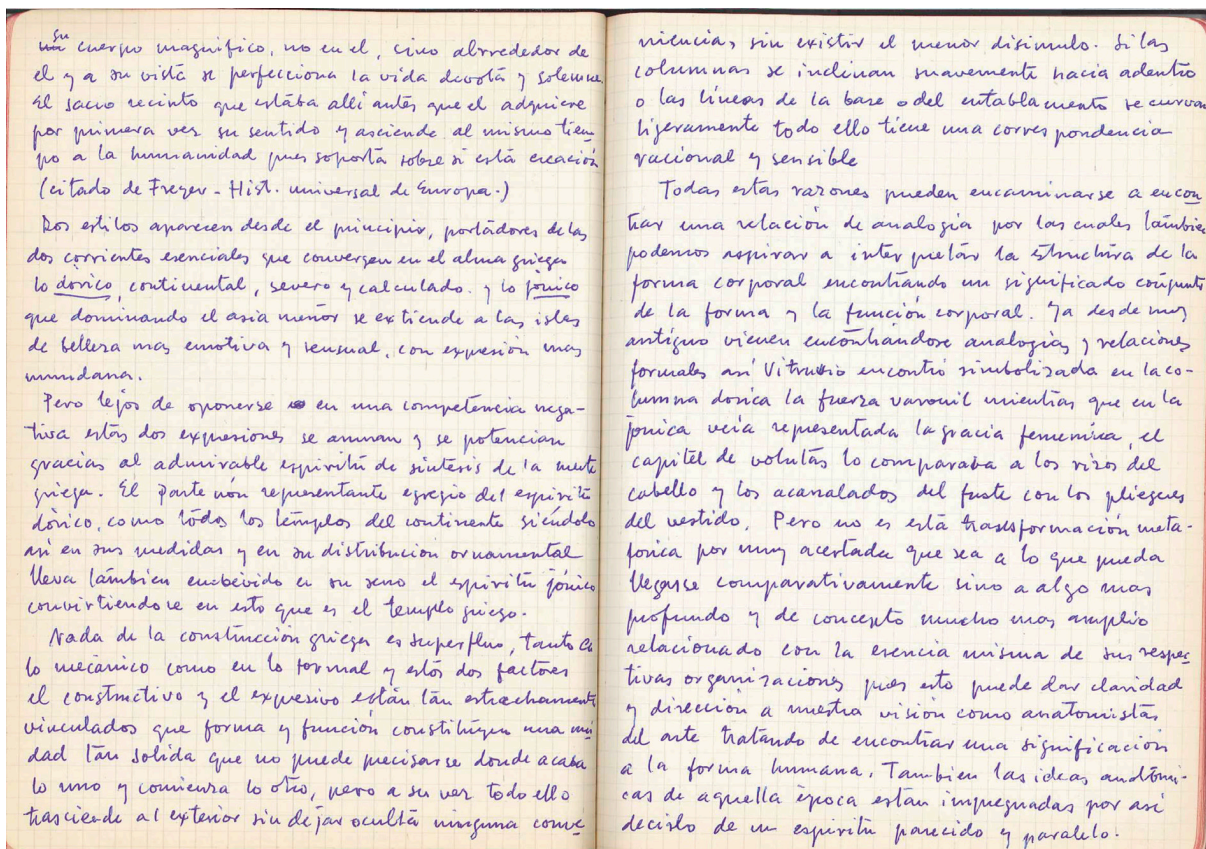 su cuerpo magnífico, no en el, cino alrrededor de
el y a su vista se perfecciona la vida devota y solemne.
El sacro recinto que estába alli antes que el adquiere
por primera vez su sentido y asciende al mismo tiem
po a la humanidad pues soporta sobre si está creación
(citado de Freyer - Hist. universal de Europa.)
Dos estilos aparecen desde el principio, portádores de las
dos corrientes esenciales que convergen en el alma griega
lo dórico, continental, severo y calculado. y lo jónico
que dominando el asia menor se extiende a las islas
de belleza mas emotiva y sensual, con expresión mas
mundana.
Pero lejos de oponerse en una competencia nega-
tiva estás dos expresiones se aunan y se potencian
gracias al admirable espiritú de síntesis de la mente
griega. El Partenón representante egregio del espiritú
dórico, como tódos los témplos del continente siéndolo
así en sus medidas y en su distribución ornamental
lleva támbien embebido en su seno el espiritu jónico
convirtiendose en esto que es el templo griego.
Nada de la construcción griega es superfluo, tanto en
lo mecánico como en lo formal y estós dos factores
el constructivo y el expresivo están tan estrechamente
vinculados que forma y función constituyen una uni
dad tan solida que no puede precisarse donde acaba
lo uno y comienza lo otro, pero a su vez todo ello
trasciende al exterior sin dejar ocultá ninguna conve
niencia, sin existir el menor disimulo. Si las
columnas se inclinan suavemente hacia adentro
o las líneas de la base o del entablamento se curvan
ligeramente todo ello tiene una correspondencia
racional y sensible
Todas estas razones pueden encaminarse a encon
trar una relación de analogía por las cuales támbien
podemos aspirar a interpretár la estructura de la
forma corporal encontrando un significado conjunto
de la forma y la función corporal. Ya desde muy
antíguo vienen encontrandose analogias y relaciones
formales así Vitruvio encontró simbolizada en la co-
lumna dorica la fuerza varonil mientras que en la
jónica veía representada la gracia femenina, el
capitel de volutás lo comparaba a los rizos del
cabello y los acanalados del fuste con los pliegues
del vestido. Pero no es está transformación meta-
forica por muy acertada que sea a lo que pueda
llegarse comparativamente sino a algo mas
profundo y de concepto mucho mas amplio
relacionado con la esencia misma de sus respec
tivas organizaciones pues esto puede dar claridad
y dirección a nuestra visión como anatomistás
del arte tratando de encontrar una significación
a la forma humana. Tambien las ideas anátomi-
cas de aquella época están impregnadas por así
decirlo de un espiritu parecido y paralelo.